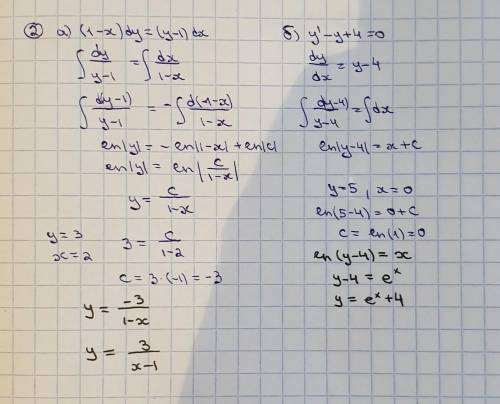 ② а) (1-x)dy = (y-1)dx
∫ dy/(y-1) = ∫ dx/(1-x)
∫ d(y-1)/(y-1) = -∫ d(1-x)/(1-x)
en|y| = -en|1-x| + en|c|
en|y| = en|c/(1-x)|
y = c/(1-x)
y = 3
x = 2
3 = c/(1-2)
c = 3·(-1) = -3
y = -3/(1-x)
y = 3/(x-1)
б) y' - y + 4 = 0
dy/dx = y-4
∫ d(y-4)/(y-4) = ∫dx
en|y-4| = x + c
y=5, x=0
en(5-4) = 0 + c
c = en(1) = 0
en(y-4) = x
y-4 = eˣ
y = eˣ + 4